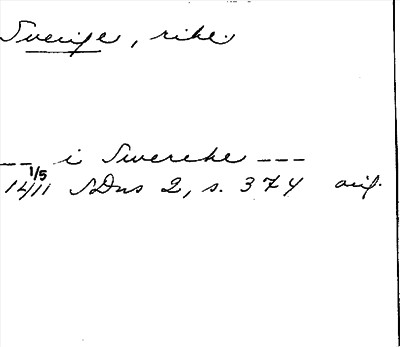 Sverige, rike.
--- i Swereke ---
1/5
1411 SDns 2, s. 374 orig.